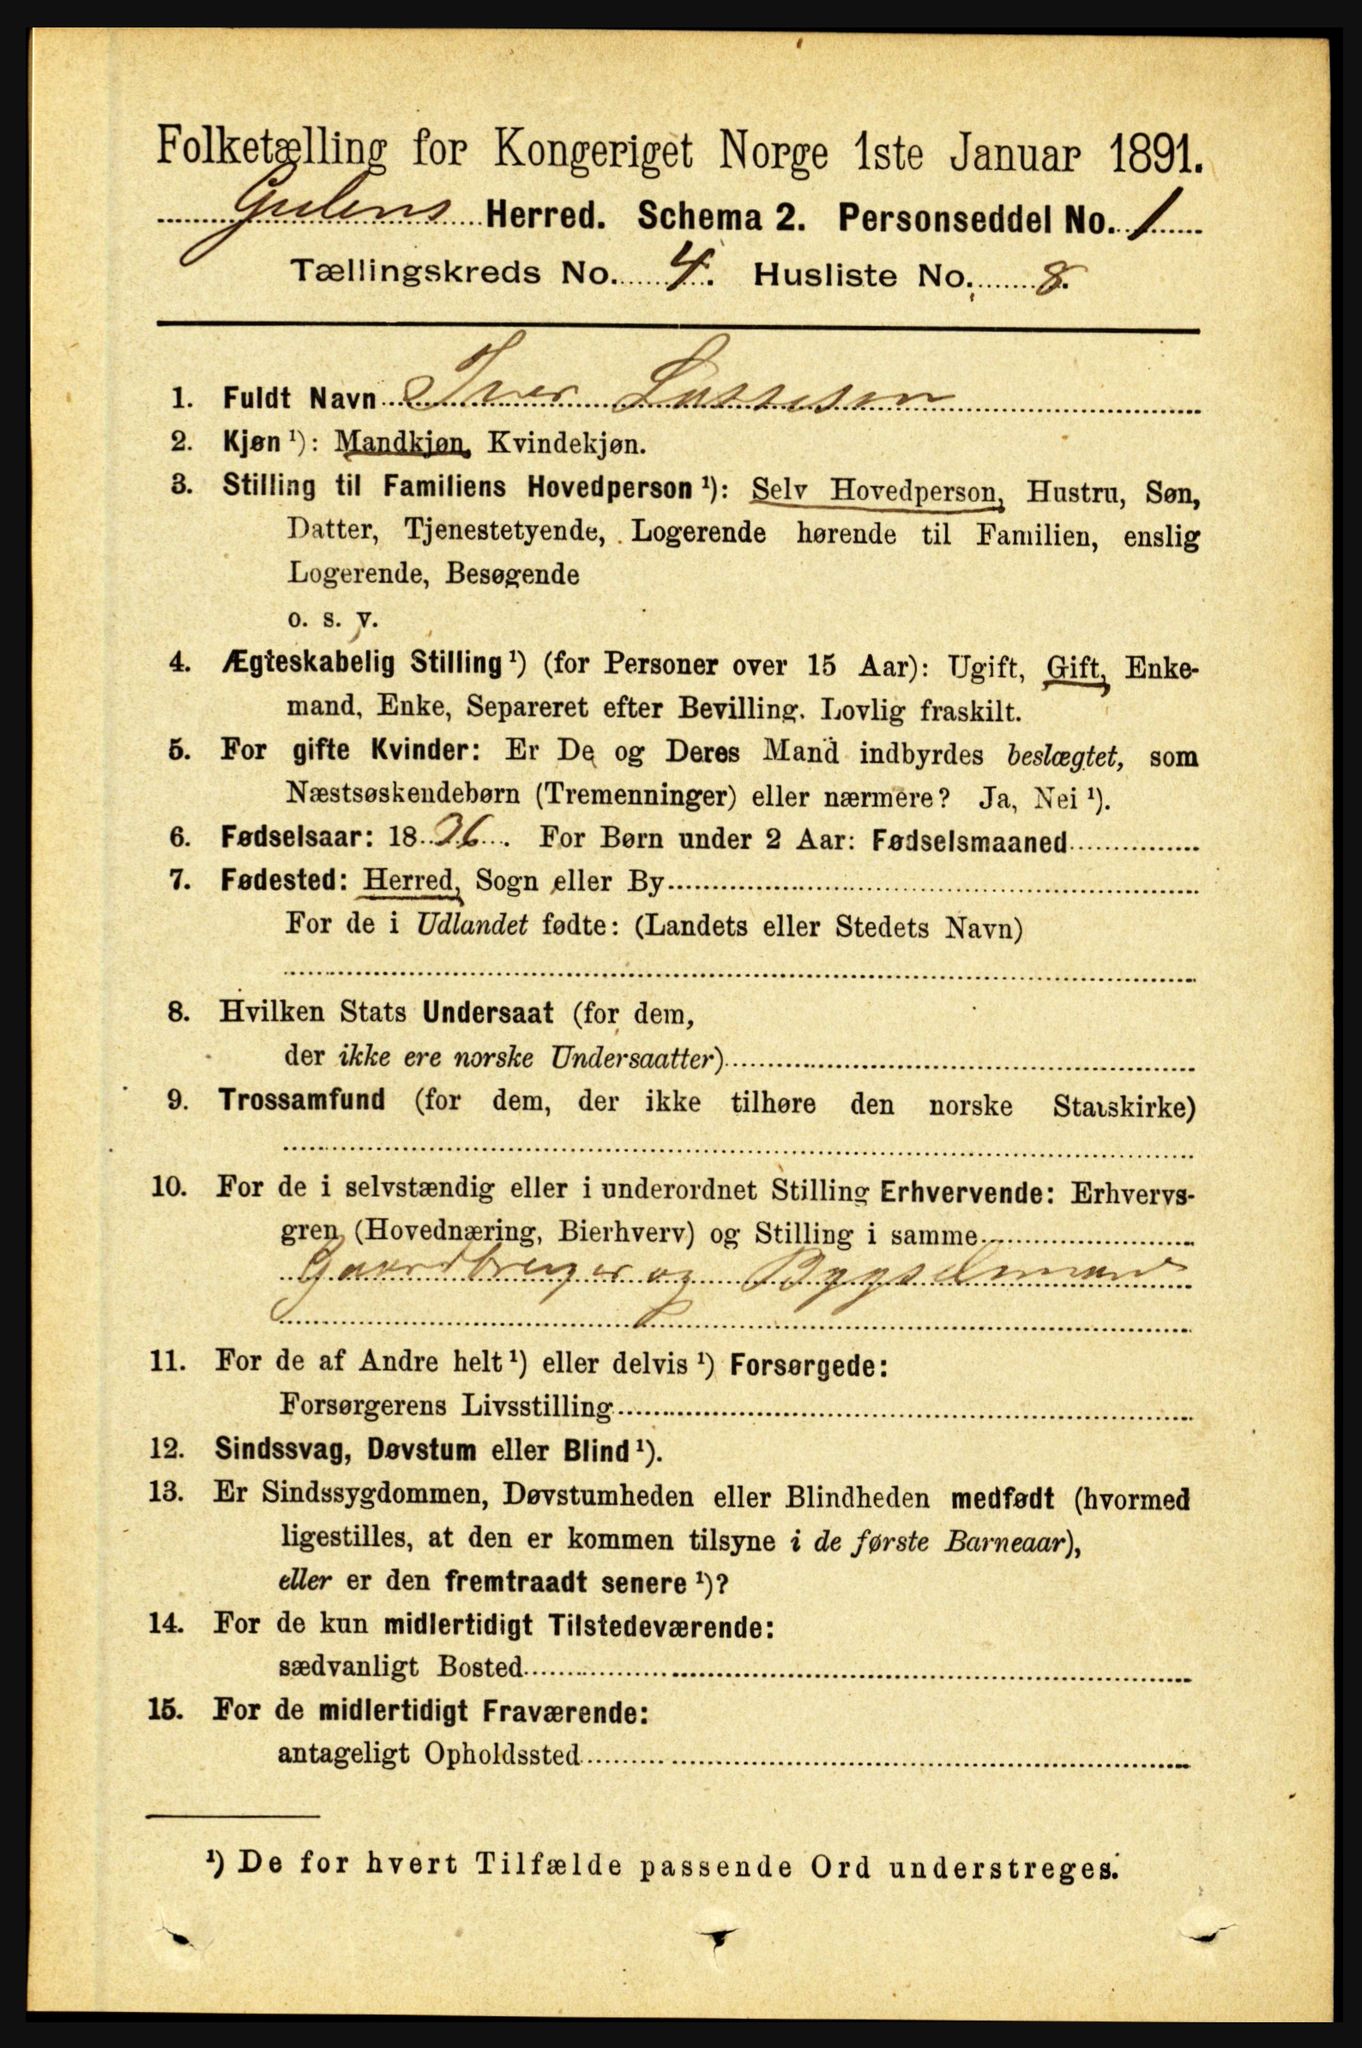 Folketælling for Kongeriget Norge 1ste Januar 1891.
Gulens Herred. Schema 2. Personseddel No. 1
Tællingskreds No. 4. Husliste No. 8.
1. Fuldt Navn Iver Lassesen
2. Kjøn ¹): Mandkjøn, Kvindekjøn.
3. Stilling til Familiens Hovedperson ¹): Selv Hovedperson, Hustru, Søn,
Datter, Tjenestetyende, Logerende hørende til Familien, enslig
Logerende, Besøgende
o. s. v.
4. Ægteskabelig Stilling ¹) (for Personer over 15 Aar): Ugift, Gift, Enke-
mand, Enke, Separeret efter Bevilling. Lovlig fraskilt.
5. For gifte Kvinder: Er De og Deres Mand indbyrdes beslægtet, som
Næstsøskendebørn (Tremenninger) eller nærmere? Ja, Nei ¹).
6. Fødselsaar: 1836. For Børn under 2 Aar: Fødselsmaaned
7. Fødested: Herred, Sogn eller By
For de i Udlandet fødte: (Landets eller Stedets Navn)
8. Hvilken Stats Undersaat (for dem,
der ikke ere norske Undersaatter)
9. Trossamfund (for dem, der ikke tilhøre den norske Statskirke)
10. For de i selvstændig eller i underordnet Stilling Erhvervende: Erhvervs-
gren (Hovednæring, Bierhverv) og Stilling i samme
Gaardbruger og Bygselmand
11. For de af Andre helt ¹) eller delvis ¹) Forsørgede:
Forsørgerens Livsstilling
12. Sindssvag, Døvstum eller Blind ¹).
13. Er Sindssygdommen, Døvstumheden eller Blindheden medfødt (hvormed
ligestilles, at den er kommen tilsyne i de første Barneaar),
eller er den fremtraadt senere ¹)?
14. For de kun midlertidigt Tilstedeværende:
sædvanligt Bosted
15. For de midlertidigt Fraværende:
antageligt Opholdssted
¹) De for hvert Tilfælde passende Ord understreges.